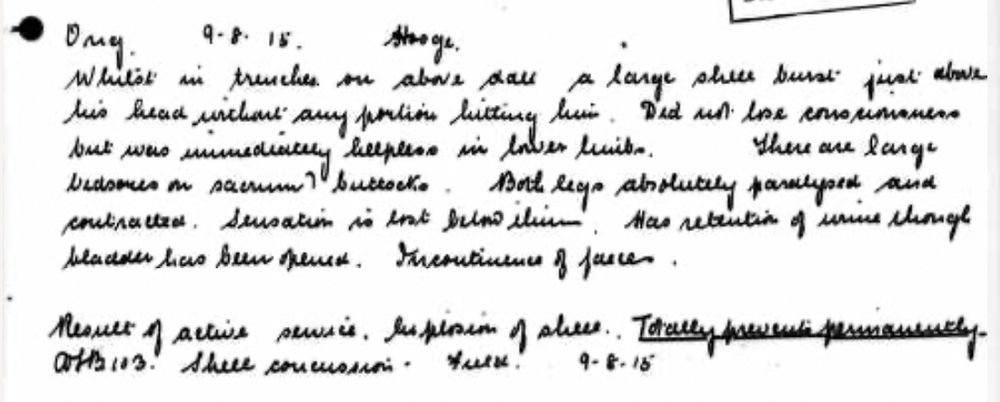 Orig. 9-8-15. Hooge.
Whilst in trenches on above date a large shell burst just above
his head without any portion hitting him. Did not lose consciousness
but was immediately helpless in lower limbs. There are large
bedsores on sacrum & buttocks. Both legs absolutely paralysed and
contracted. Sensation is lost below ilium. Has retention of urine though
bladder has been opened. Incontinence of faeces.
Result of active service. Explosion of shell. Totally prevents permanently.
103. Shell concussion. Field. 9-8-15